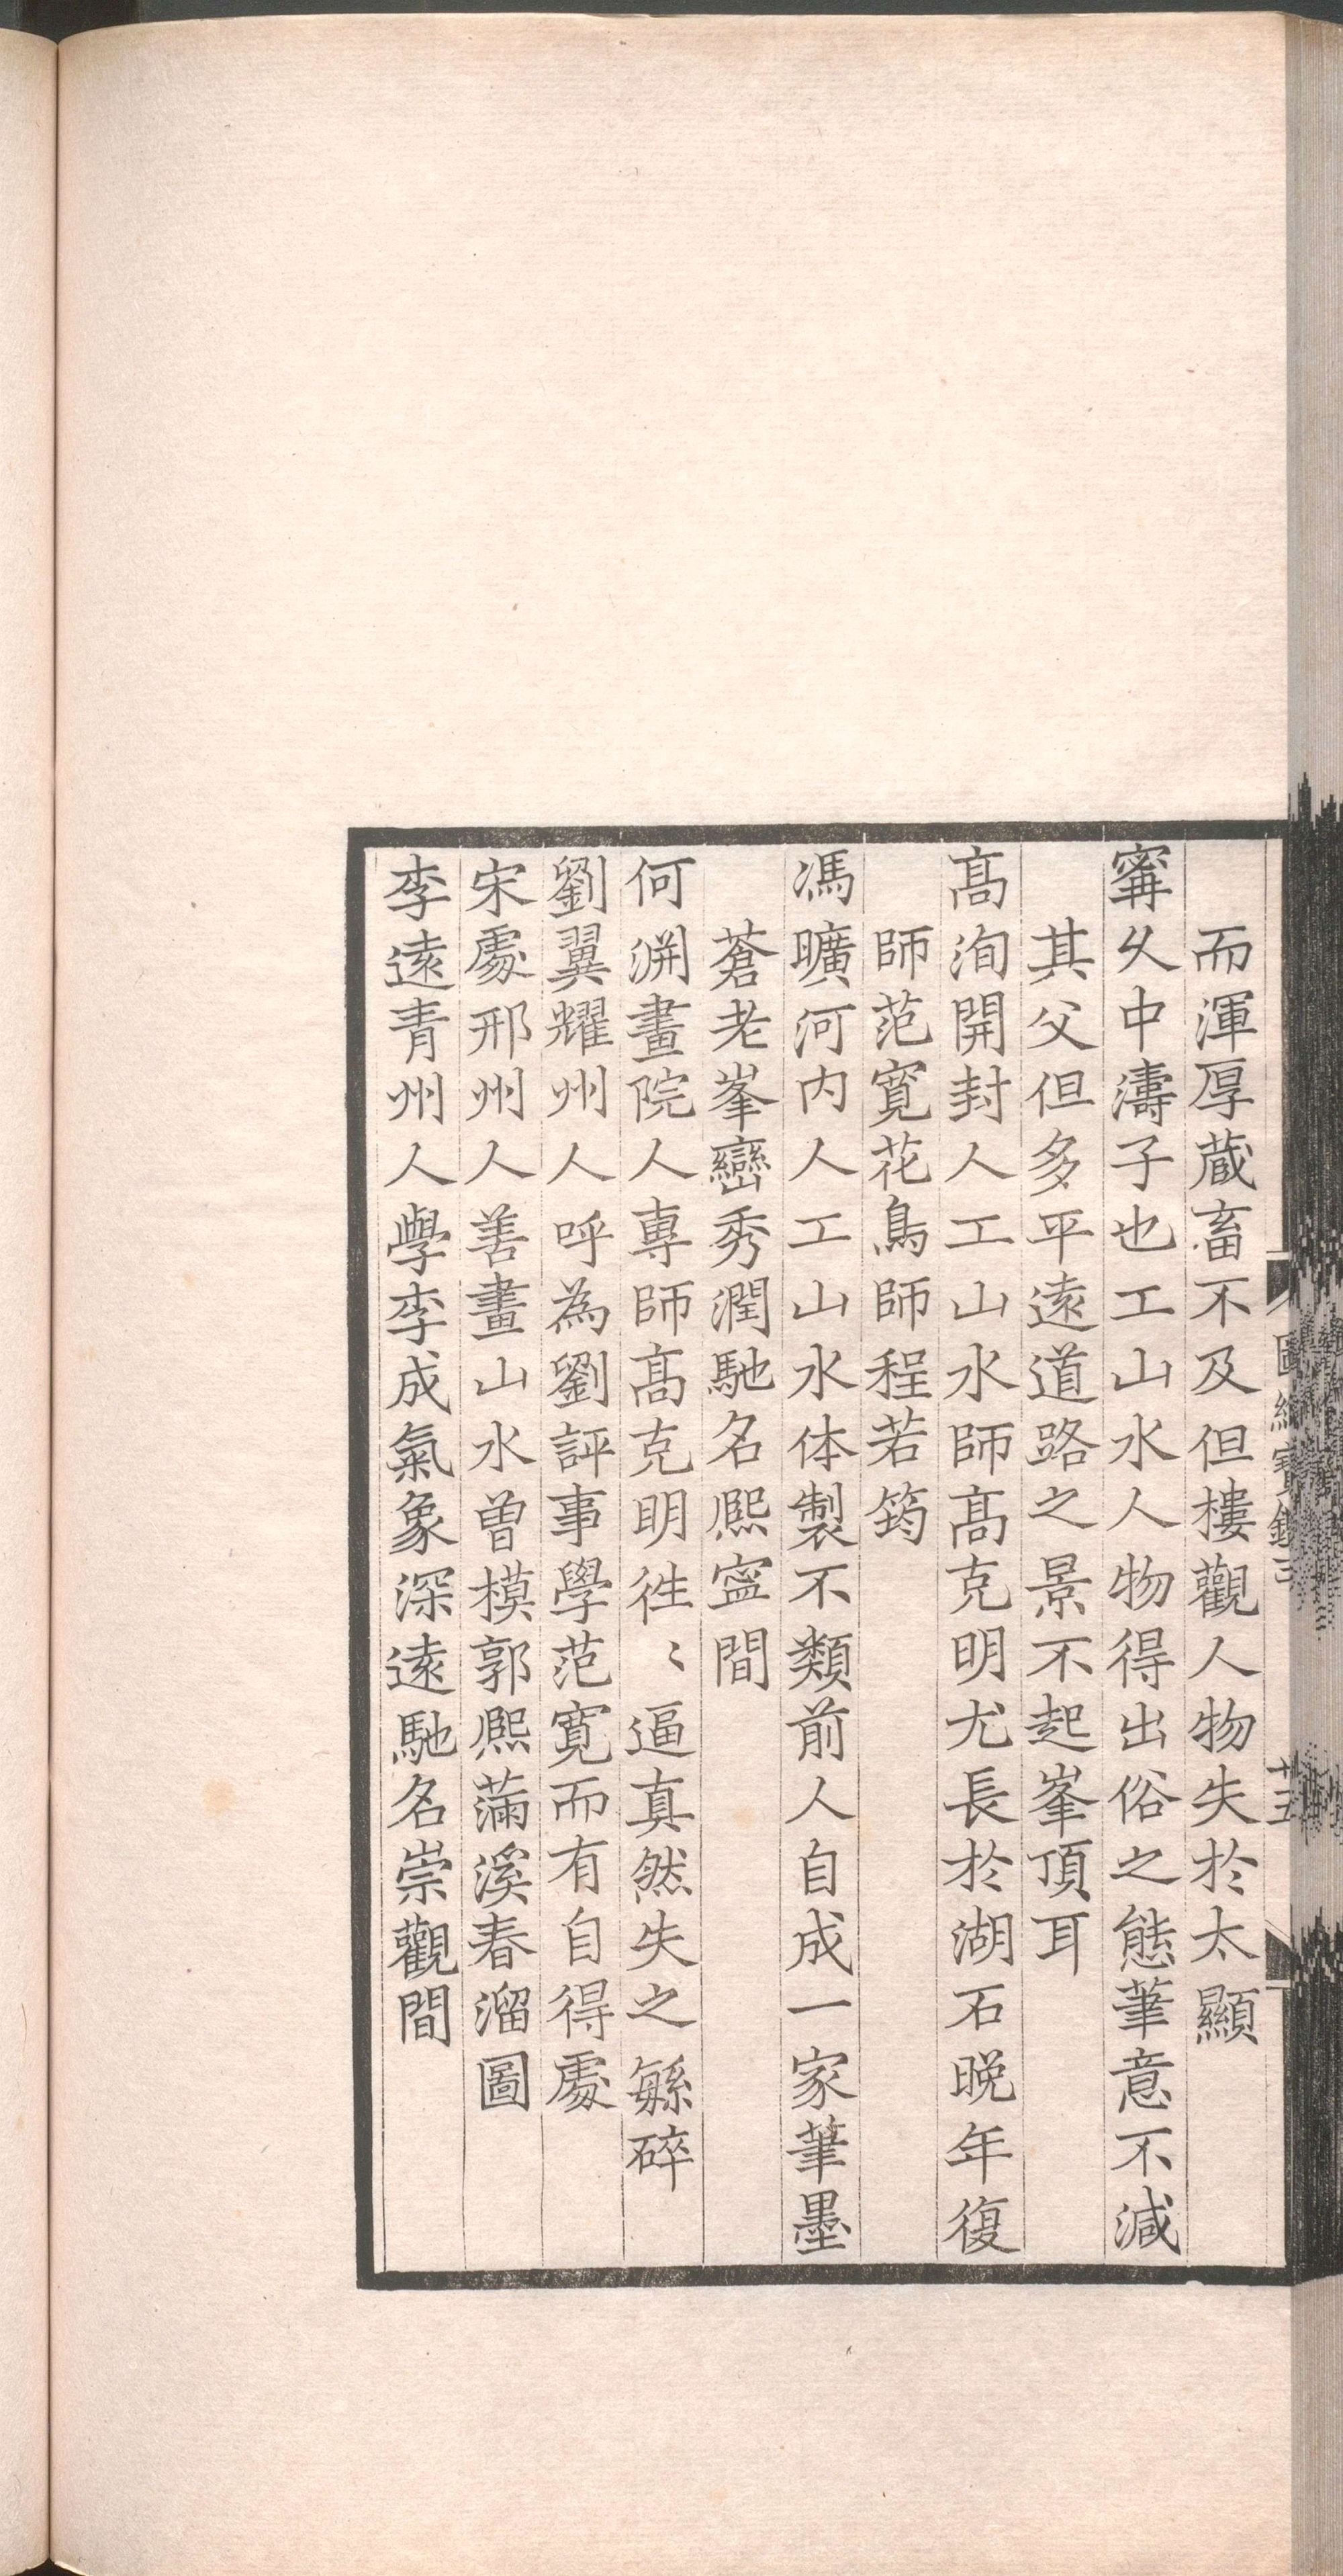 而渾厚蔵畜不及但樓觀人物失於太顯
甯久中濤子也工山水人物得出俗之態筆意不減
其父但多平遠道路之景不起峯頂耳
髙洵開封人工山水師髙克明尤長於湖石晚年復
師范寛花鳥師程若筠
馮曠河内人工山水体製不類前人自成一家筆墨
蒼老峯巒秀潤馳名熈寧間
何渊畫院人專師髙克明徃〻逼真然失之繁碎
劉翼耀州人呼為劉評事學范寛而有自得處
宋處邢州人善畫山水曾模郭熈蒲溪春溜圖
李遠青州人學李成氣象深遠馳名崇觀間
圖繪寳鑑三
廿五